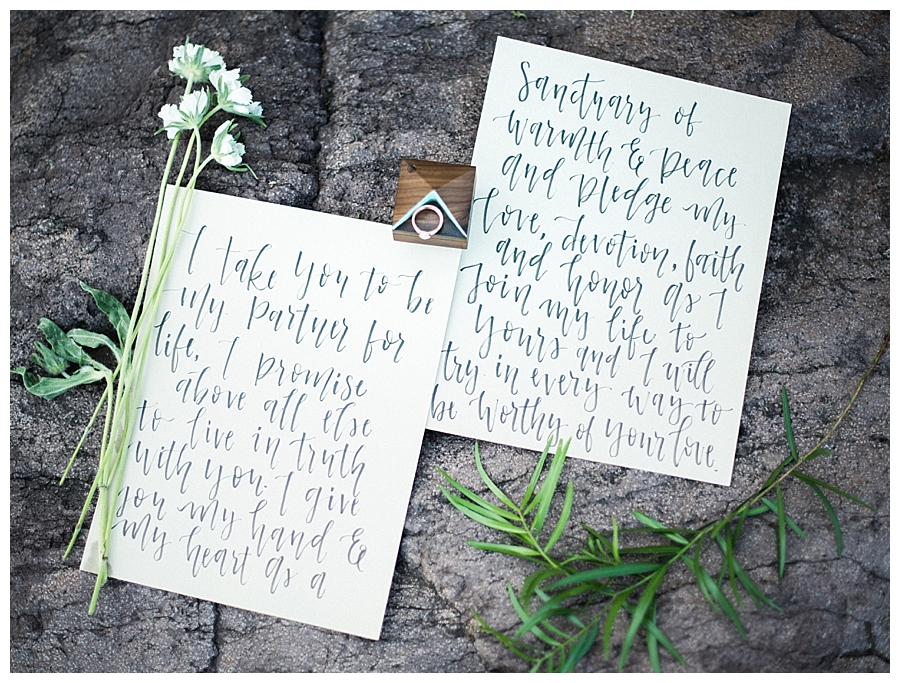 I take you to be
my partner for
life, I promise
above all else
to live in truth
with you. I give
you my hand &
my heart as a
Sanctuary of
warmth & peace
and pledge my
love, devotion, faith
and honor as I
Join my life to
yours and I will
try in every way to
be worthy of your love.